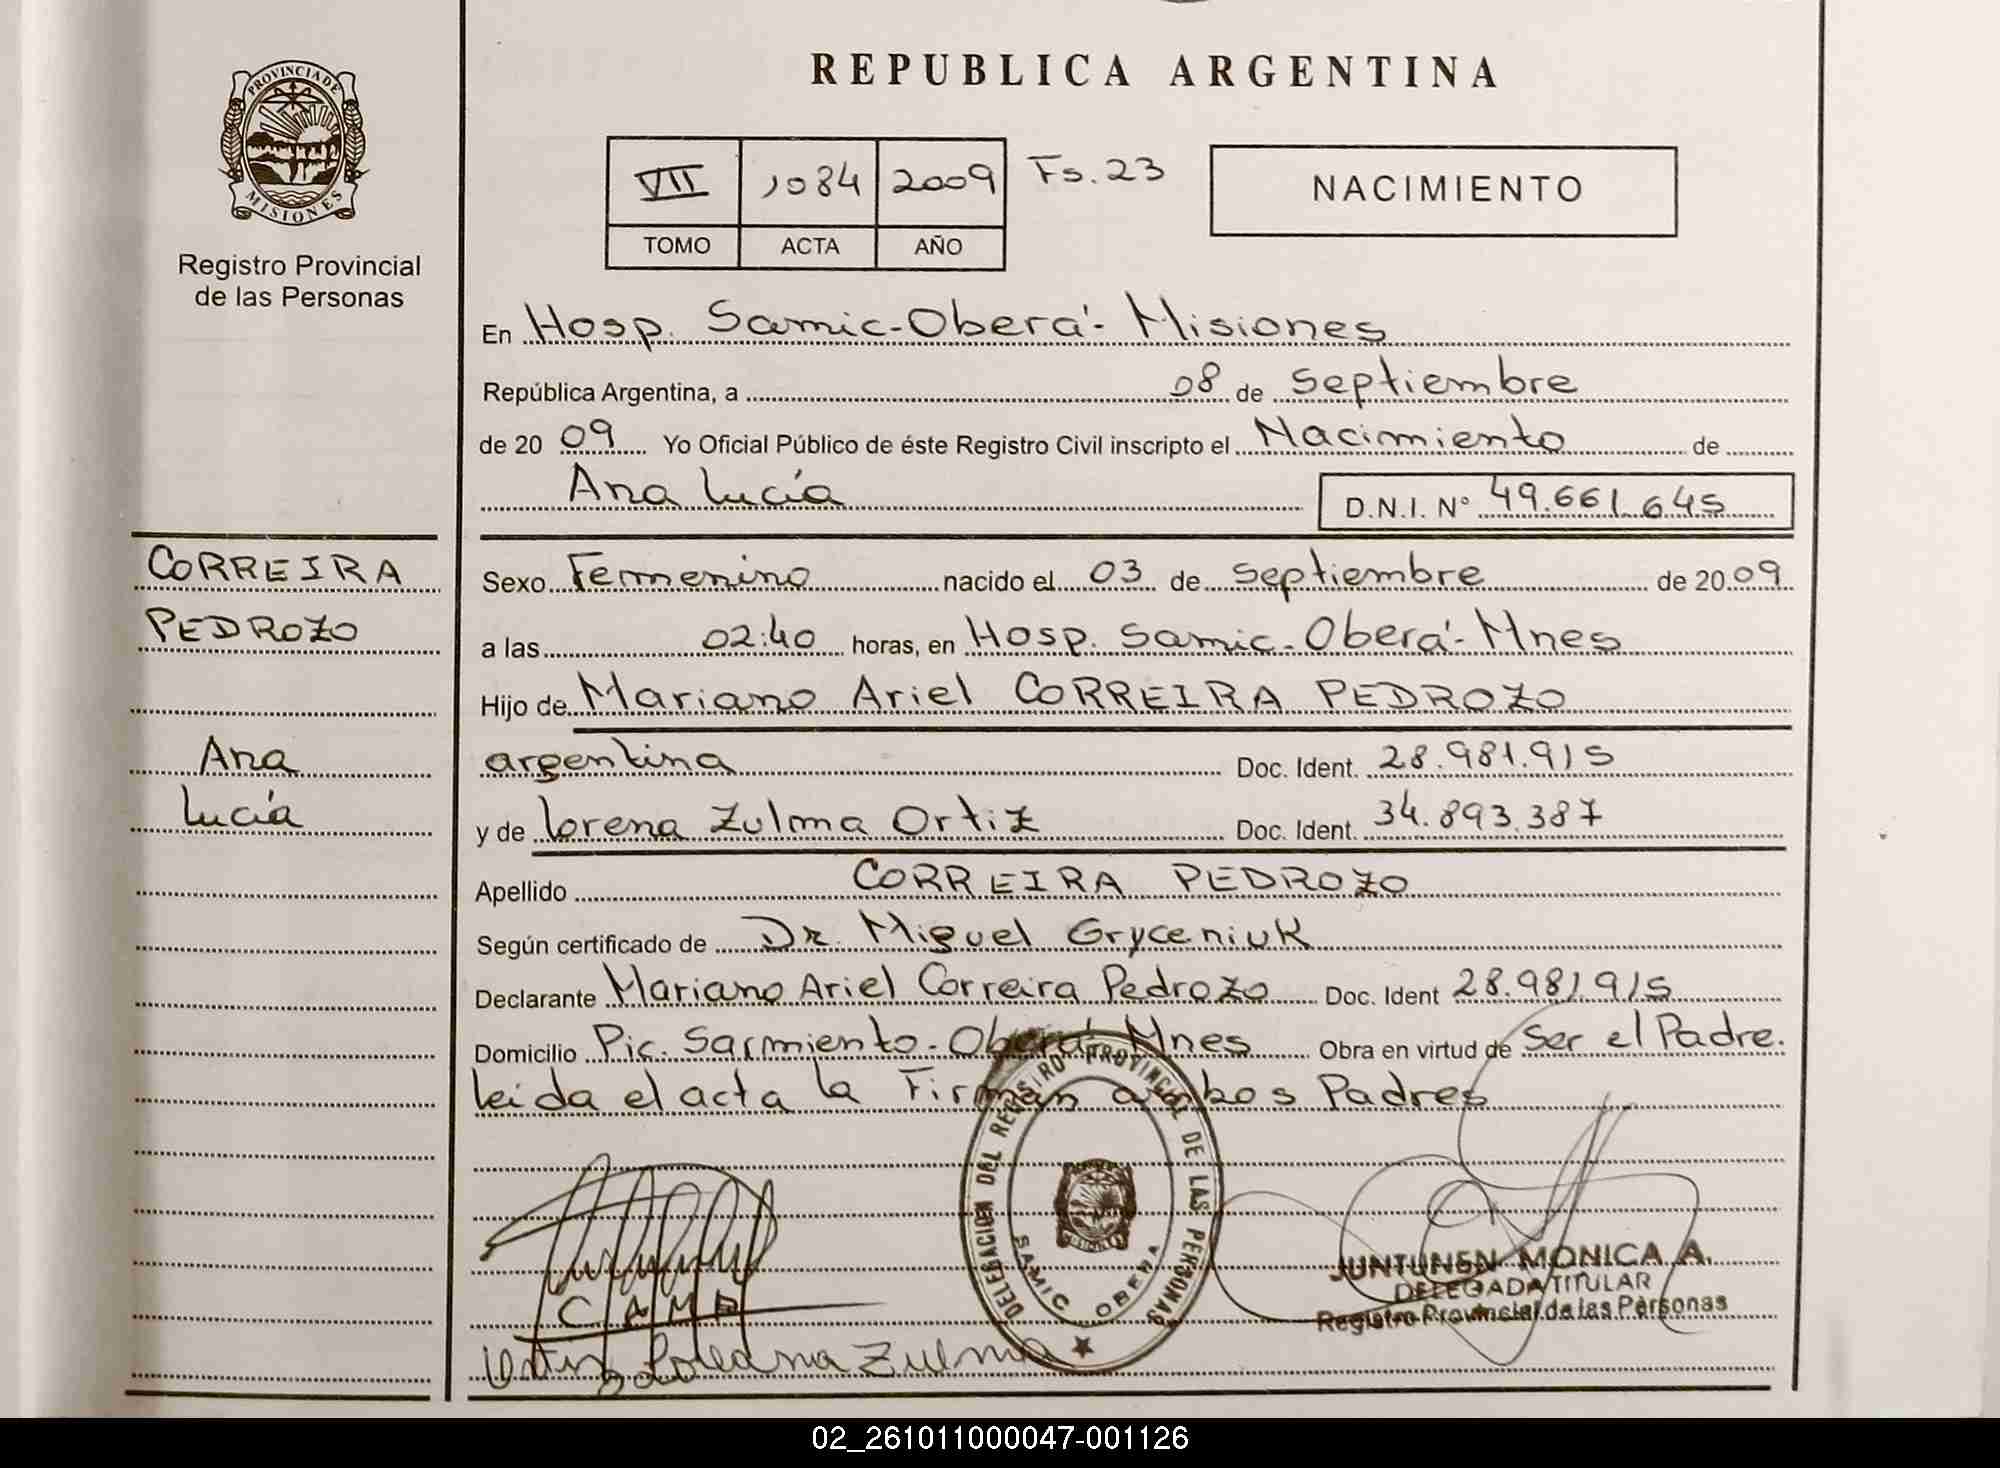 REPUBLICA ARGENTINA
PROVINCIA DE MISIONES
Registro Provincial
de las Personas
VII 1084 2009 Fs. 23
TOMO ACTA AÑO
NACIMIENTO
En Hosp. Samic-Oberá- Misiones
República Argentina, a 08 de septiembre
de 20 09 Yo Oficial Público de éste Registro Civil inscripto el Nacimiento de
Ana Lucía D.N.I. Nº 49.661.645
CORREIRA
PEDROZO
Ana
Lucía
Sexo Femenino nacido el 03 de septiembre de 20 09
a las 02:40 horas, en Hosp. Samic-Oberá- Mnes
Hijo de Mariano Ariel CORREIRA PEDROZO
argentina Doc. Ident. 28.981.915
y de Lorena Zulma Ortiz Doc. Ident. 34.893.387
Apellido CORREIRA PEDROZO
Según certificado de Dr. Miguel Gryceniuk
Declarante Mariano Ariel Correira Pedrozo Doc. Ident 28.981915
Domicilio Pic. Sarmiento-Oberá-Mnes Obra en virtud de Ser el Padre.
Leida el acta la Firman ambos Padres
DELEGACION DEL REGISTRO PROVINCIAL DE LAS PERSONAS
SAMIC OBERA
JUNTUNEN MONICA A.
DELEGADA TITULAR
Registro Provincial de las Personas
Zulma
02_261011000047-001126